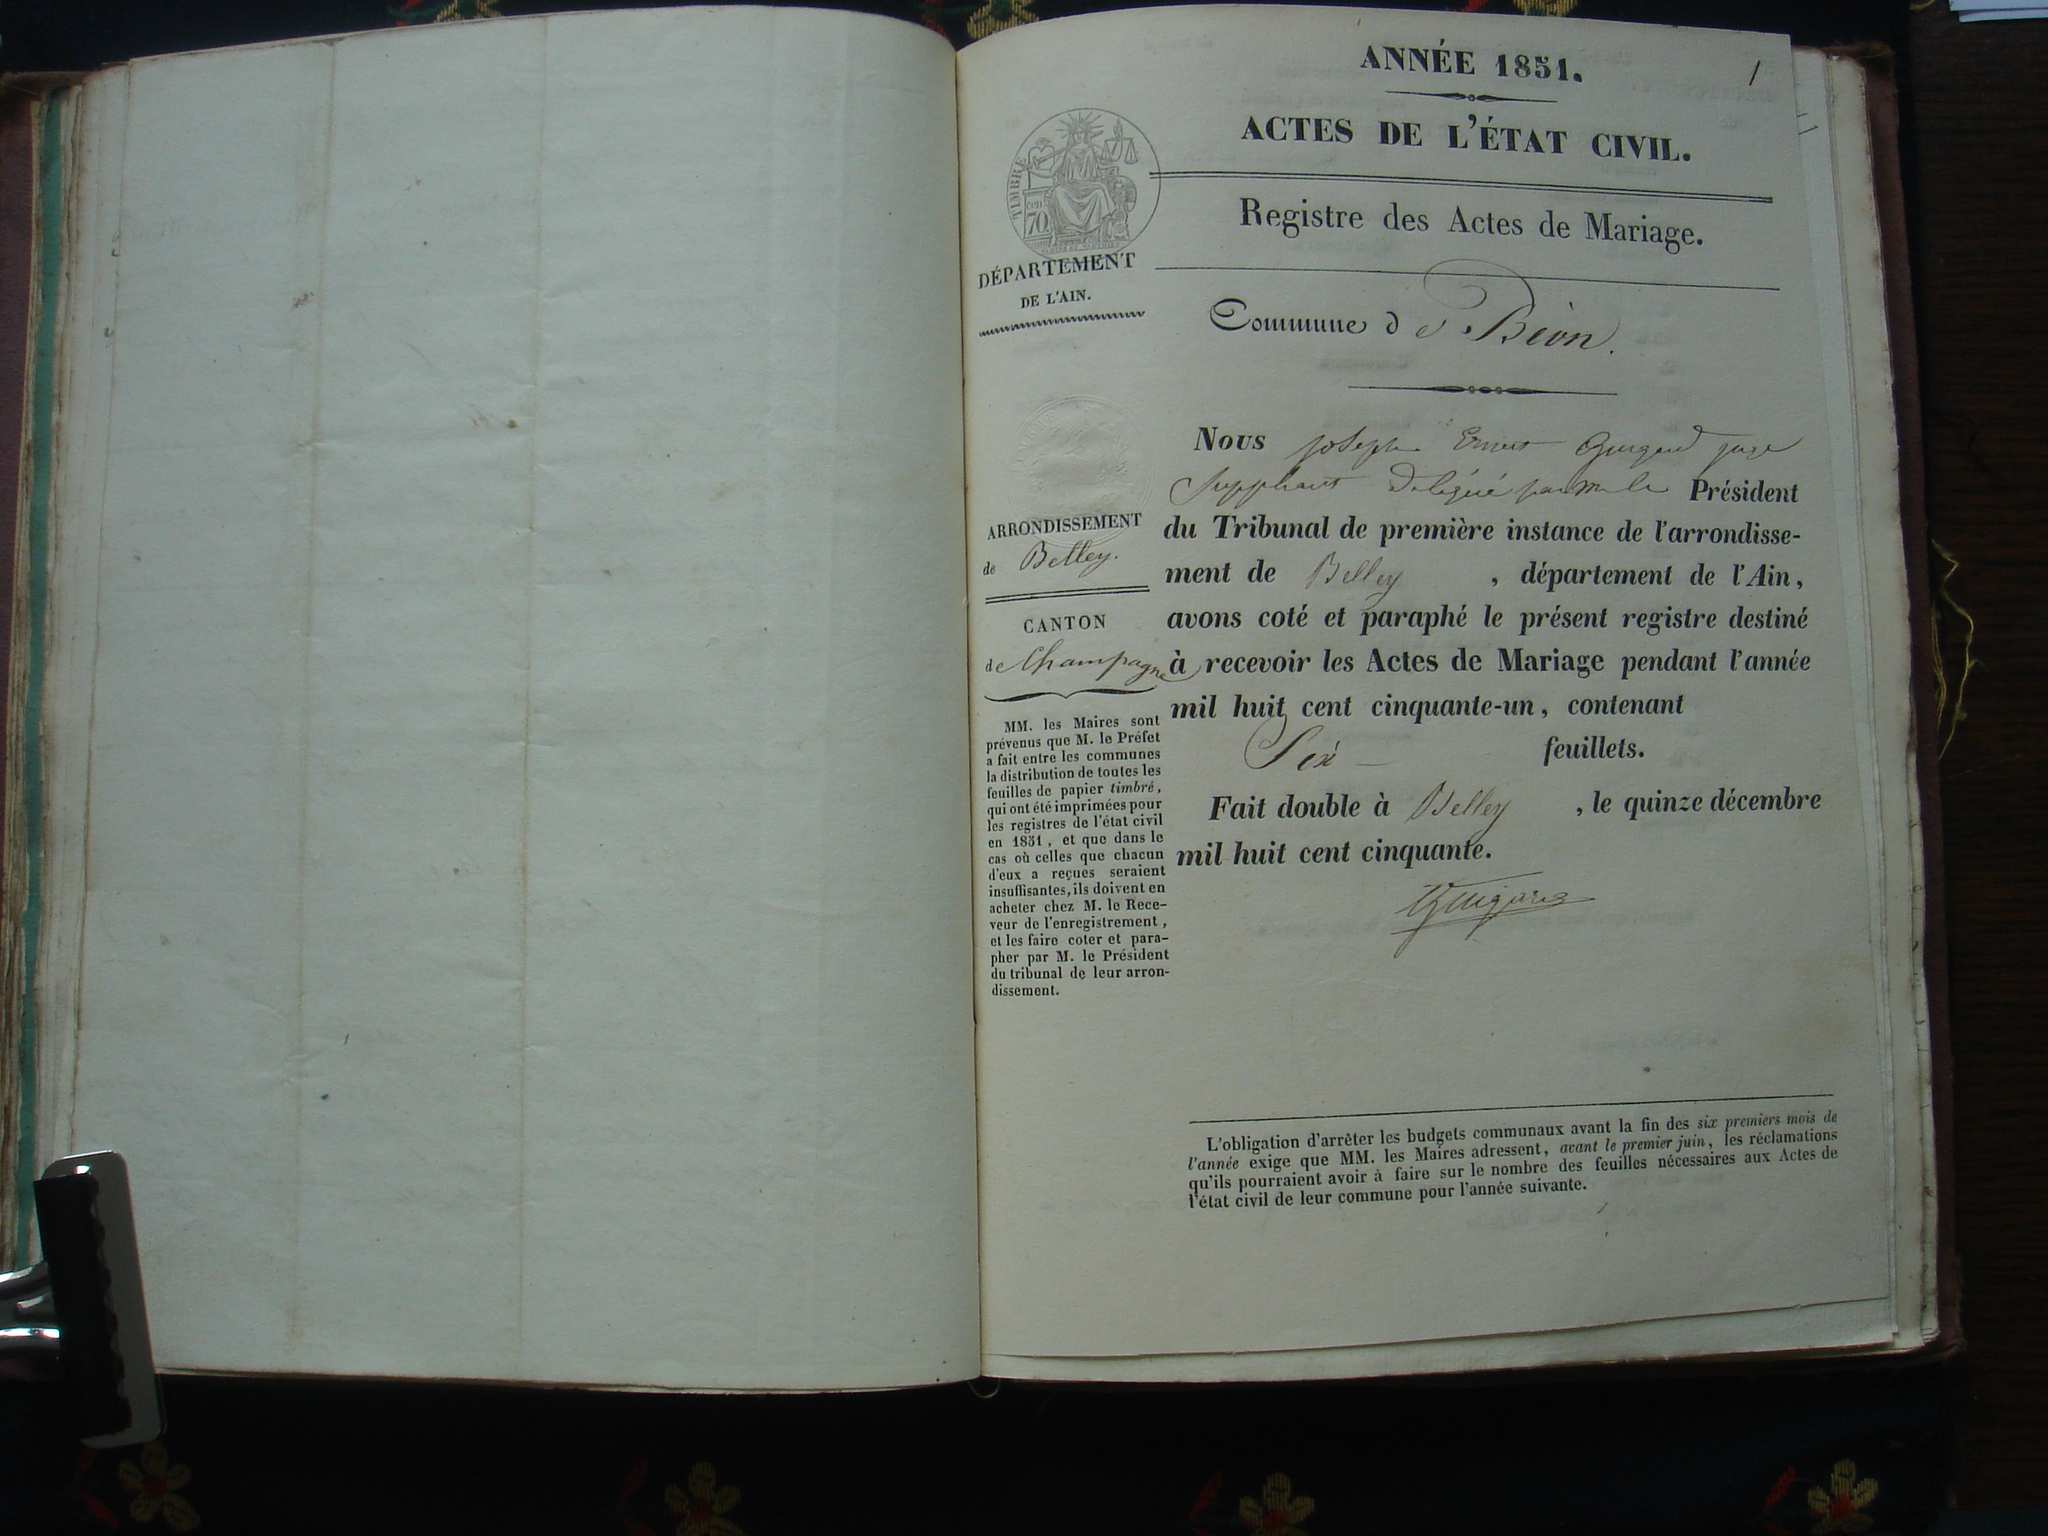 ANNÉE 1851.
1
ACTES DE L'ÉTAT CIVIL.
TIMBRE
CEN
70
Registre des Actes de Mariage.
DÉPARTEMENT
DE L'AIN.
Commune de Béon.
Nous joseph Ernest juge
Suppléant Délégué par Mr le Président
du Tribunal de première instance de l'arrondisse-
ment de Belley, département de l'Ain,
avons coté et paraphé le présent registre destiné
à recevoir les Actes de Mariage pendant l'année
mil huit cent cinquante-un, contenant
Six feuillets.
Fait double à Belley, le quinze décembre
mil huit cent cinquante.
ARRONDISSEMENT
de Belley.
CANTON
de Champagne
MM. les Maires sont
prévenus que M. le Préfet
a fait entre les communes
la distribution de toutes les
feuilles de papier timbré,
qui ont été imprimées pour
les registres de l'état civil
en 1851, et que dans le
cas où celles que chacun
d'eux a reçues seraient
insuffisantes, ils doivent en
acheter chez M. le Rece-
veur de l'enregistrement,
et les faire coter et para-
pher par M. le Président
du tribunal de leur arron-
dissement.
L'obligation d'arrêter les budgets communaux avant la fin des six premiers mois de
l'année exige que MM. les Maires adressent, avant le premier juin, les réclamations
qu'ils pourraient avoir à faire sur le nombre des feuilles nécessaires aux Actes de
l'état civil de leur commune pour l'année suivante.